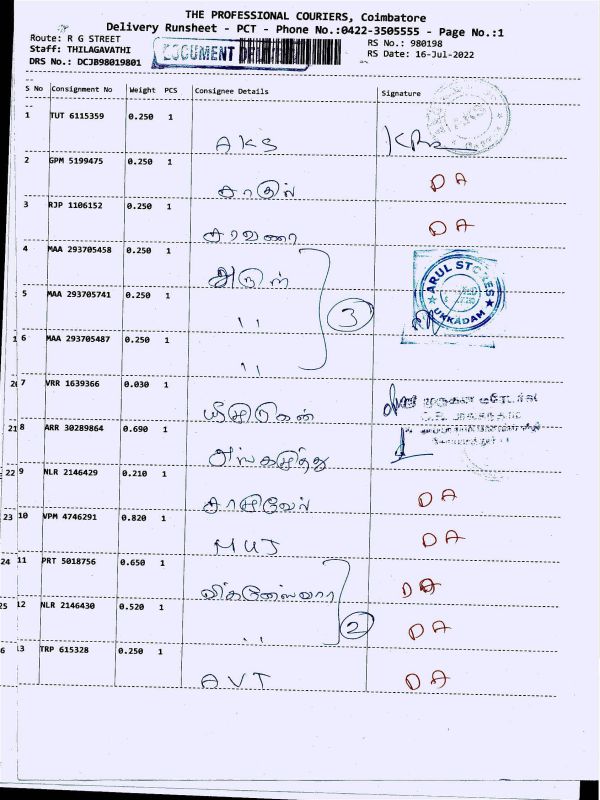 THE PROFESSIONAL COURIERS, Coimbatore
Delivery Runsheet - PCT - Phone No.:0422-3505555 - Page No.:1
Route: R G STREET
RS No.: 980198
Staff: THILAGAVATHI
DOCUMENT
RS Date: 16-Jul-2022
DRS No.: DCJB98019801
S No Consignment No Weight PCS Consignee Details Signature
1 TUT 6115359 0.250 1
AKS
2 GPM 5199475 0.250 1
DA
3 RJP 1106152 0.250 1
சரவணா DA
4 MAA 293705458 0.250 1
அருள்
ARUL STORES
UKKADAM
5 MAA 293705741 0.250 1
,, 3
1 6 MAA 293705487 0.250 1
,,
20 7 VRR 1639366 0.030 1
21 8 ARR 30289864 0.690 1
22 9 NLR 2146429 0.210 1
DA
23 10 VPM 4746291 0.820 1
MUJ DA
24 11 PRT 5018756 0.650 1
DA
25 12 NLR 2146430 0.520 1
,, 2 DA
6 13 TRP 615328 0.250 1
AVT DA